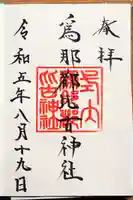 奉拝
爲那都比古神社
令和五年八月十九日